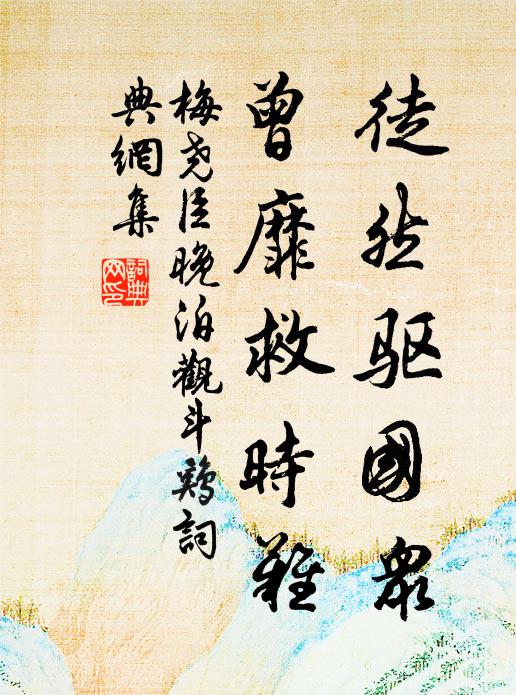 徒然驱國衆
曾靡救時難
梅尧臣晚泊觀斗鷄詞
典網集
詞典
网印